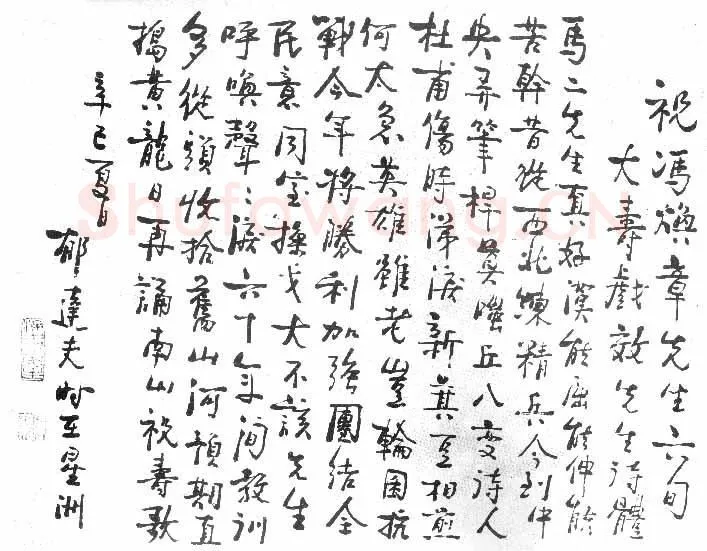 祝馮煥章先生六旬
大壽戲效先生詩體
馬二先生真好漢能屈能伸能
苦幹昔從西北練精兵今到中
央弄筆桿莫嗤丘八變詩人
杜甫傷時涕淚新萁豆相煎
何太急英雄雖老豈輪囷抗
戰今年將勝利加強團結全
民意同室操戈大不該先生
呼喚聲〻淚六十年間教訓
多從頭收拾舊山河預期直
搗黃龍日再誦南山祝壽歌
辛巳夏日
郁達夫時在星洲
Shufawang.CN